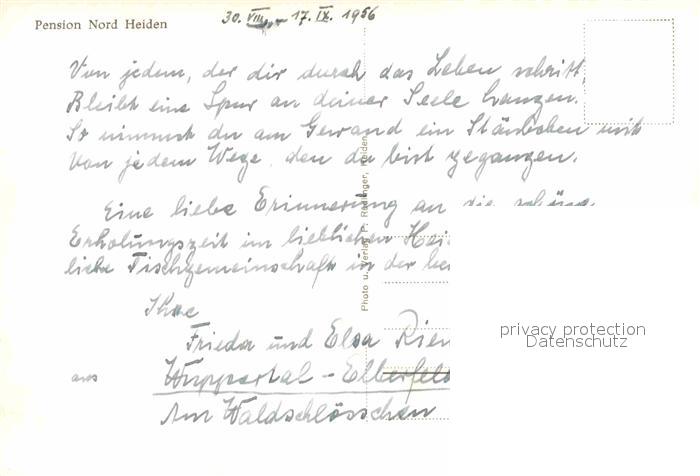 Pension Nord Heiden
30. VIII. - 17. IX. 1956
Von jedem, der dir durch das Leben schritt,
Bleibt eine Spur an deiner Seele hangen.
So nimmst du am Gewand ein Stäubchen mit
Von jedem Wege, den du bist gegangen.
Eine liebe Erinnerung an die schöne
Erholungszeit im lieblichen Hei
liebe Tischgemeinschaft in der
Ihre
Frieda und Elsa Rien
aus Wuppertal-Elberfeld
Am Waldschlösschen
Photo u. Verlag P. Rettinger, Heiden
privacy protection
Datenschutz